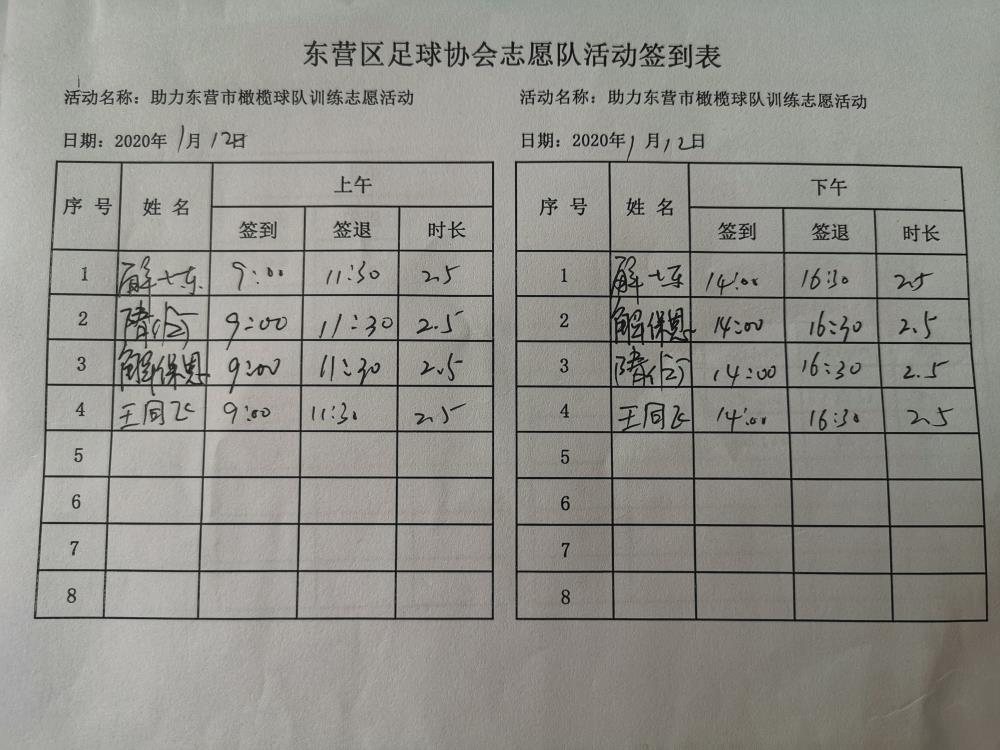 东营区足球协会志愿队活动签到表
活动名称：助力东营市橄榄球队训练志愿活动
日期：2020年1月12日
序号 姓名 上午
签到 签退 时长
1 解 东 9:00 11:30 2.5
2 隋 9:00 11:30 2.5
3 解保恩 9:00 11:30 2.5
4 王同飞 9:00 11:30 2.5
5
6
7
8
活动名称：助力东营市橄榄球队训练志愿活动
日期：2020年1月12日
序号 姓名 下午
签到 签退 时长
1 解 东 14:00 16:30 2.5
2 解保恩 14:00 16:30 2.5
3 隋 14:00 16:30 2.5
4 王同飞 14:00 16:30 2.5
5
6
7
8